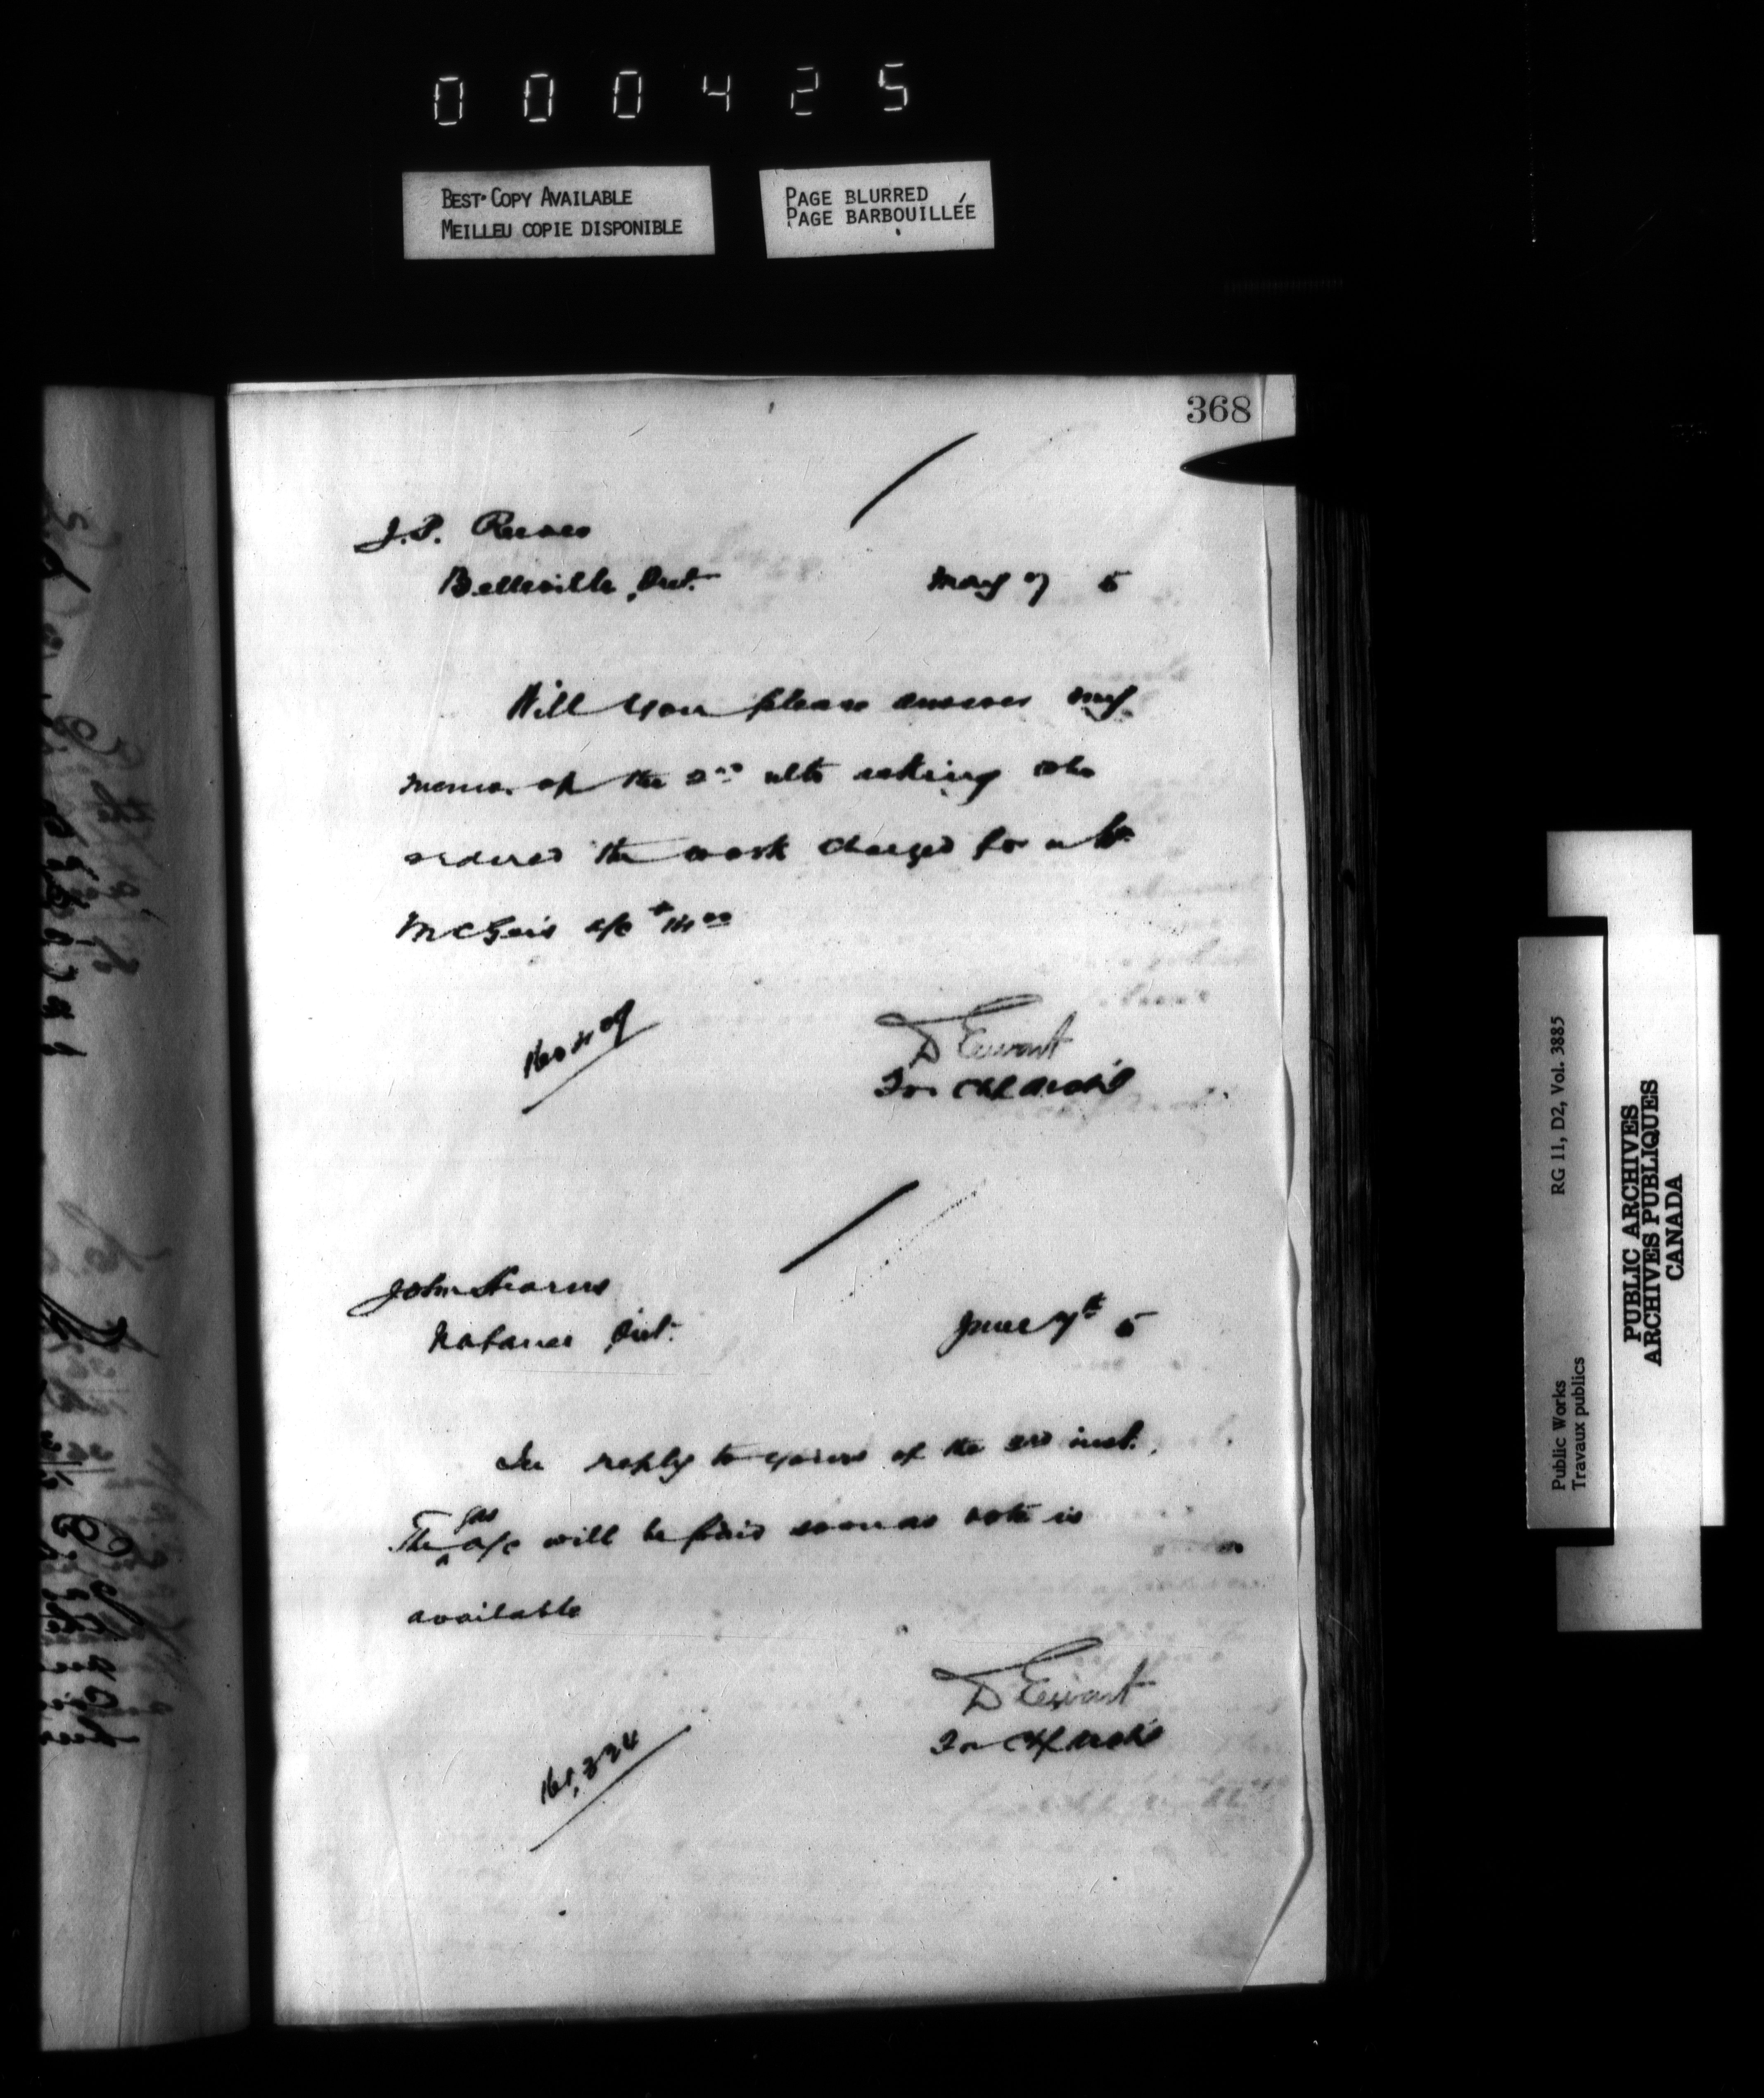 000425
BEST COPY AVAILABLE
MEILLEU COPIE DISPONIBLE
PAGE BLURRED
PAGE BARBOUILLÉE
368
J.P. Reeves
Belleville, Ont. May 7 5
Will you please answer my
memo. of the 2nd ulto asking who
ordered the work charged for in
McGuis a/c $14.00
D Ewart
For Chf Archt
John Stearns
Napanee Ont. June 7th 5
In reply to yours of the 3rd inst.
The gas a/c will be paid soon as vote is
available
D Ewart
For Chf Archt
161,324
Public Works RG 11, D2, Vol. 3885
Travaux publics
PUBLIC ARCHIVES
ARCHIVES PUBLIQUES
CANADA